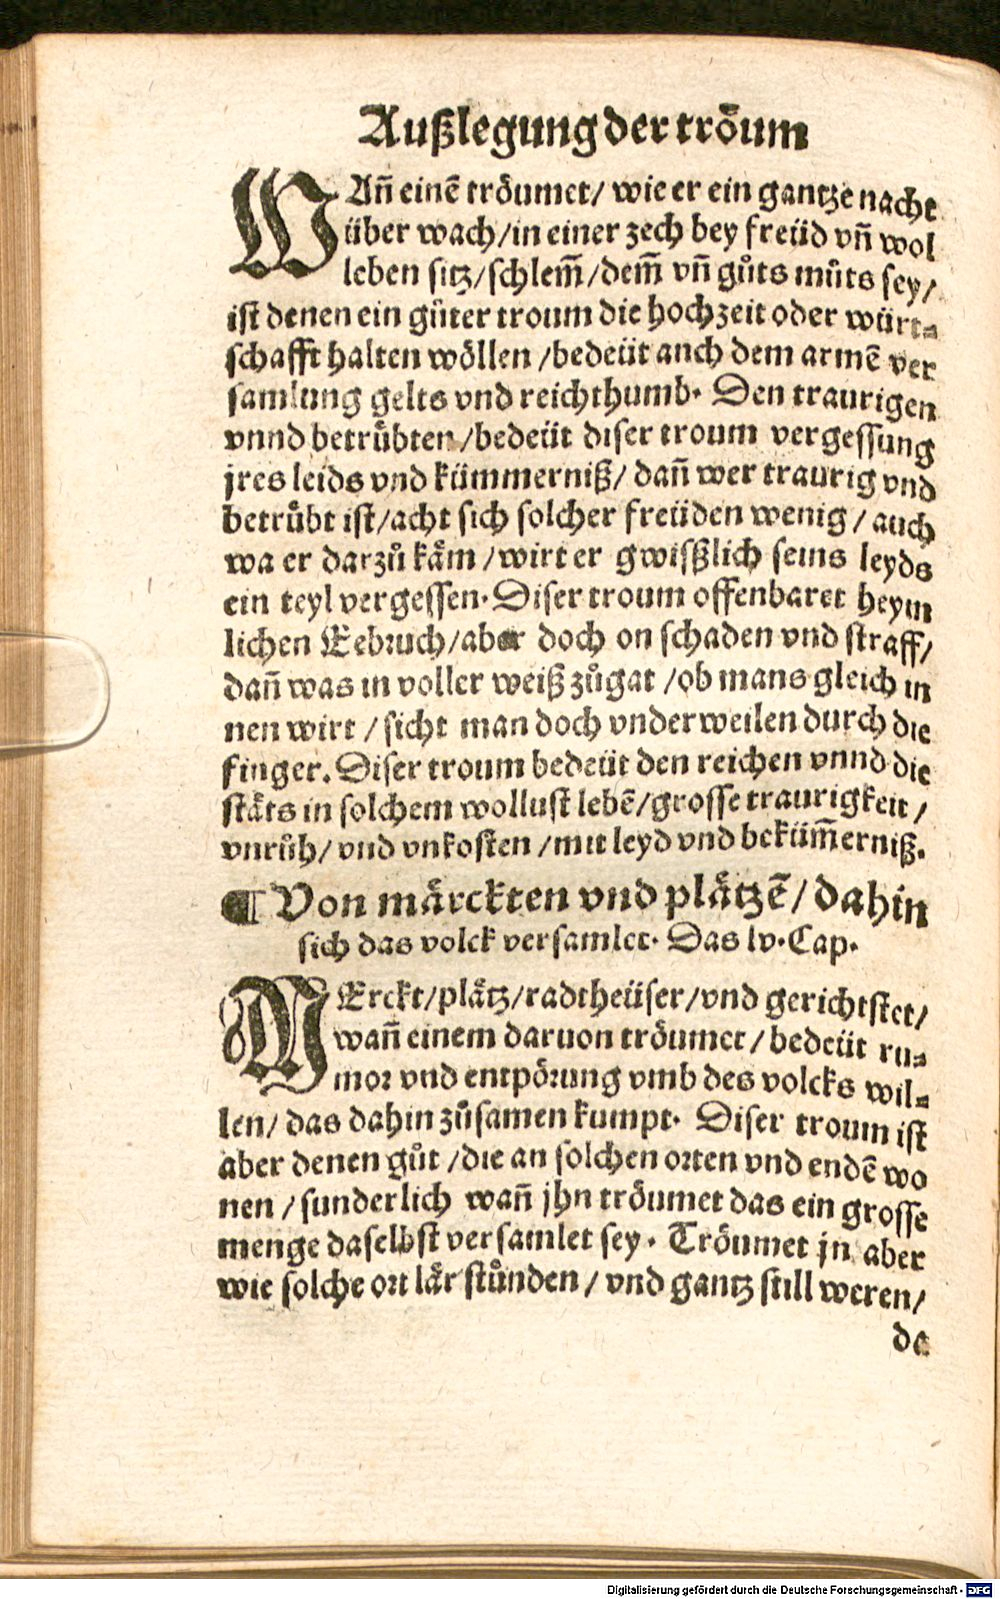 Außlegung der tröum
WAñ einē tröumet/ wie er ein gantze nacht
über wach/in einer zech bey freüd vñ wol
leben sitz/schlem̃/dem̃ vñ gůts můts sey/
ist denen ein gůter troum die hochzeit oder würt⸗
schafft halten wöllen/bedeüt auch dem armē ver
samlung gelts vnd reichthumb. Den traurigen
vnnd betrůbten/bedeüt diser troum vergessung
jres leids vnd kümmerniß/ dañ wer traurig vnd
betrůbt ist/acht sich solcher freüden wenig/auch
wa er darzů kåm/wirt er gwißlich seins leyds
ein teyl vergessen. Diser troum offenbaret heym
lichen Eebruch/aber doch on schaden vnd straff/
dañ was in voller weiß zůgat/ob mans gleich in
nen wirt/sicht man doch vnderweilen durch die
finger. Diser troum bedeüt den reichen vnnd die
ståts in solchem wollust lebē/grosse traurigkeit/
vnrůh/vnd vnkosten/mit leyd vnd beküm̃erniß.
¶ Von mårckten vnd plåtzē/dahin
sich das volck versamlet. Das lv. Cap.
MErckt/plåtz/radtheüser/vnd gerichtstet/
wañ einem daruon tröumet/bedeüt ru⸗
mor vnd entpörung vmb des volcks wil⸗
len/das dahin zůsamen kumpt. Diser troum ist
aber denen gůt/die an solchen orten vnd endē wo
nen/sunderlich wañ jhn tröumet das ein grosse
menge daselbst versamlet sey. Tröumet jn aber
wie solche ort lår stůnden/vnd gantz still weren/
da
Digitalisierung gefördert durch die Deutsche Forschungsgemeinschaft - DFG